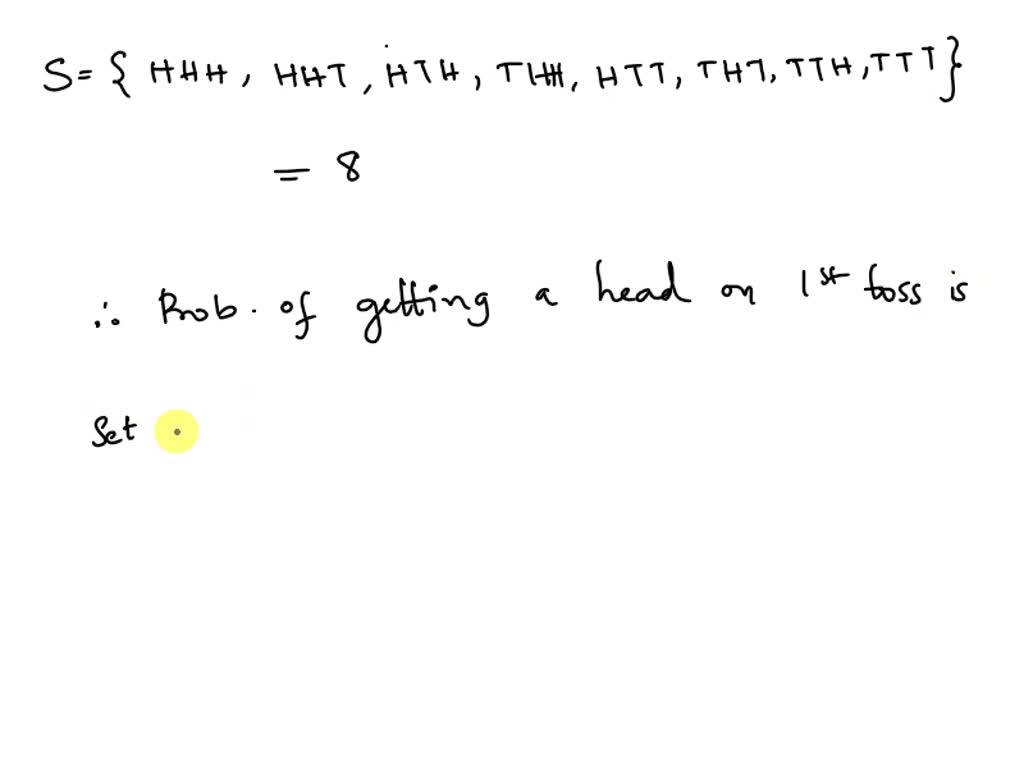 S = { HHH, HHT, HTH, THH, HTT, THT, TTH, TTT }
= 8
∴ Prob. of getting a head on 1st toss is
Set